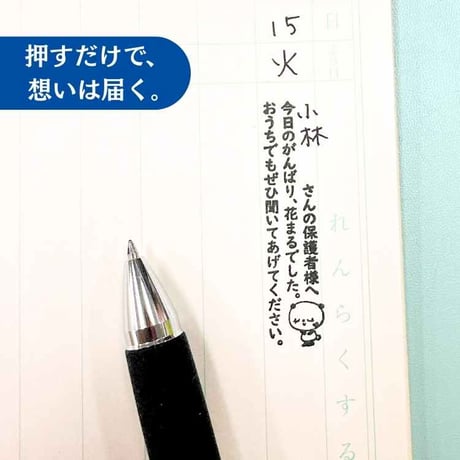 押すだけで、
想いは届く。
日
15
火
小林さんの保護者様へ
今日のがんばり、花まるでした。
おうちでもぜひ聞いてあげてください。
れんらくする